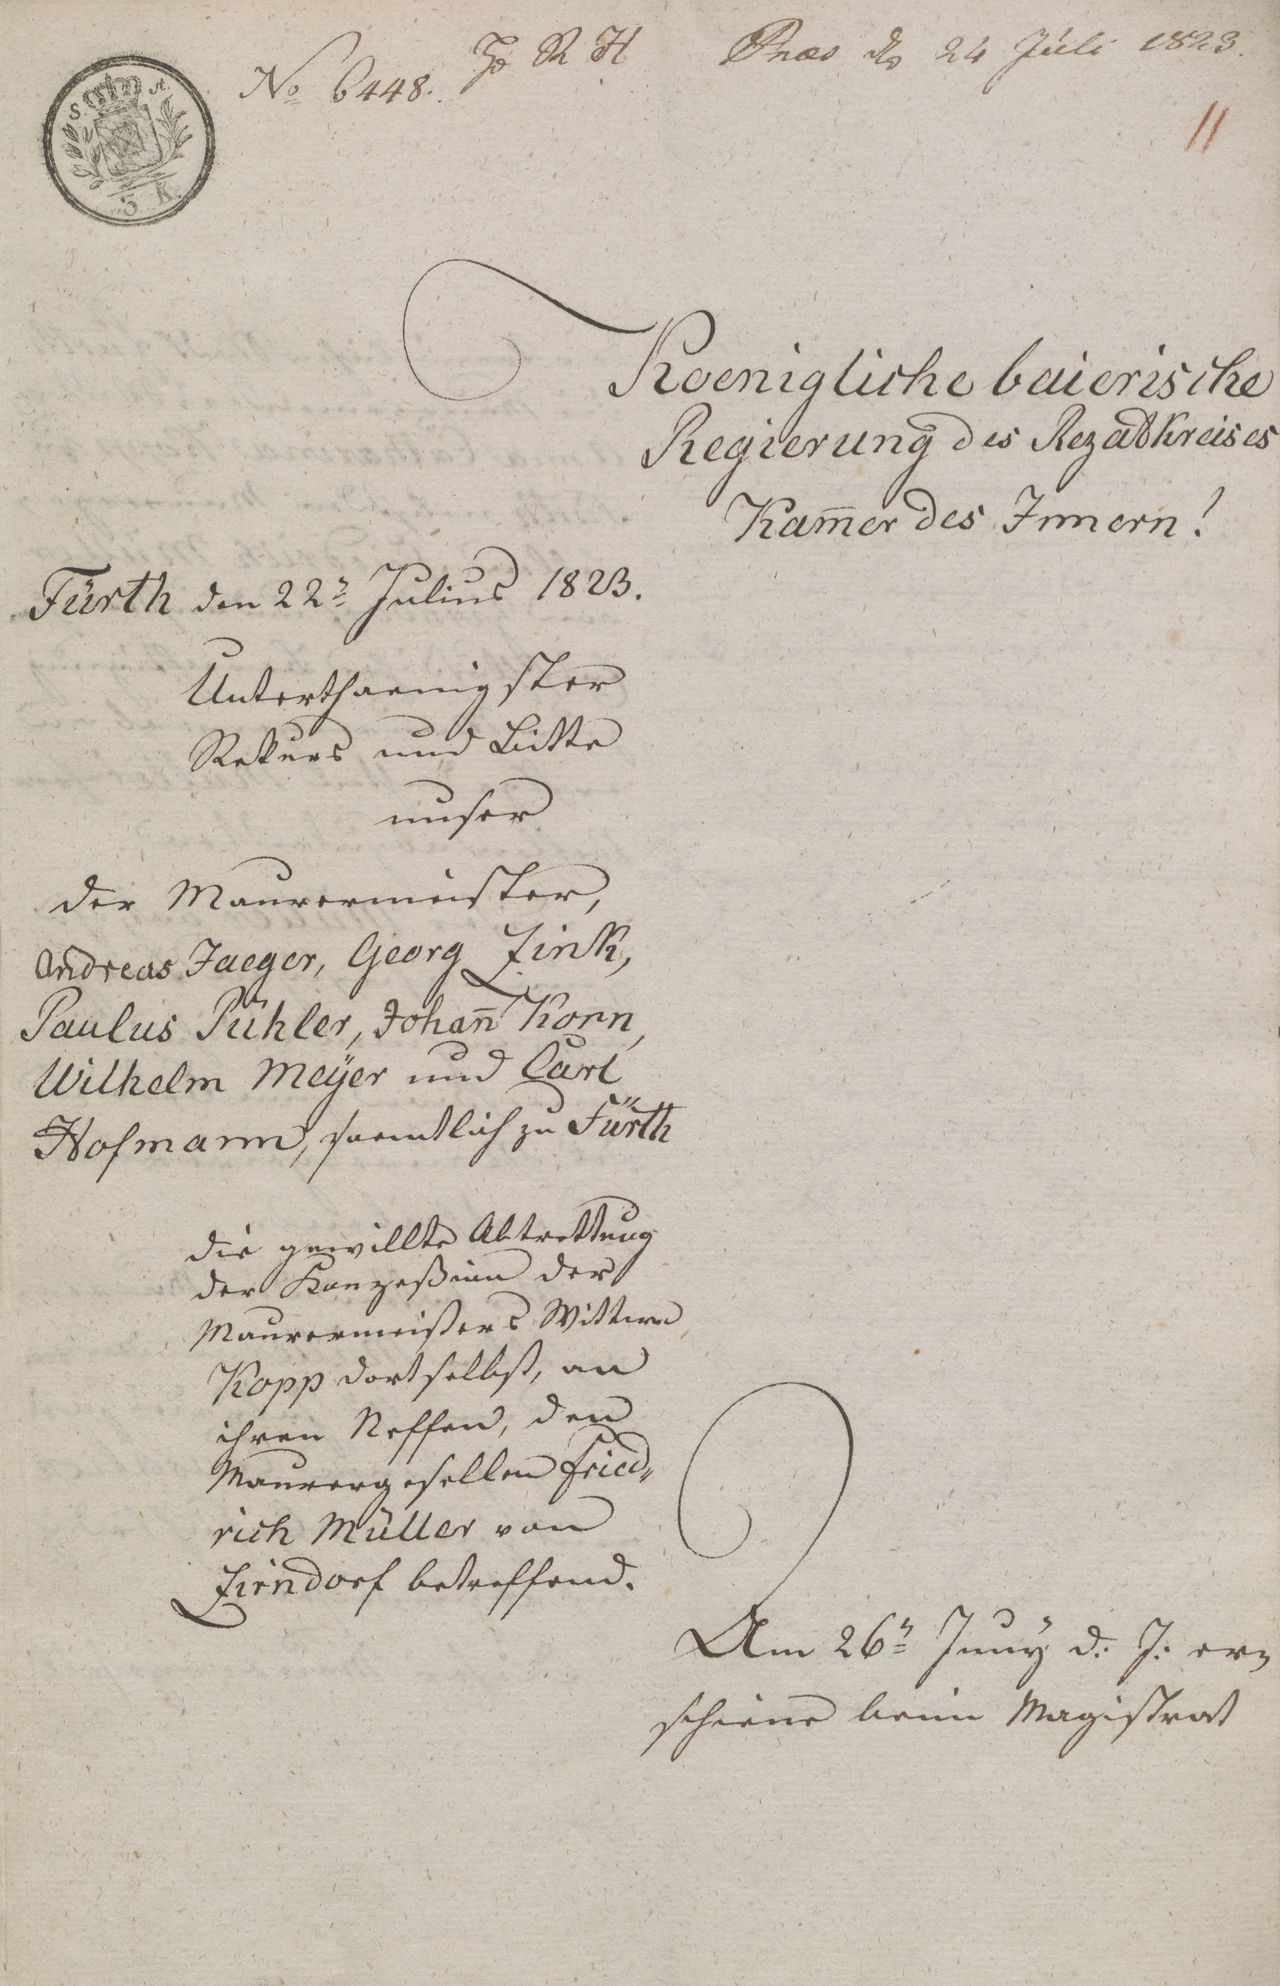 No 6448.
H R H
Praes d. 24 Juli 1823.
11
S. A.
3 K
Koenigliche baierische
Regierung des Rezatkreises
Kam̅er des Innern!
Fürth den 22n Julius 1823.
Unterthaenigster
Rekurs und Bitte
unser
der Maurermeister,
Andreas Jaeger, Georg Zink,
Paulus Pühler, Johan̅ Korn,
Wilhelm Meÿer und Carl
Hofmann, saemtlich zu Fürth
die gewillte Abtrettung
der Konzeßion der
Maurermeisters Wittwe
Kopp dortselbst, an
ihren Neffen, den
Maurergesellen Fried„
rich Müller von
Zirndorf betreffend.
Am 26n Juny d. J. er„
schiene beim Magistrat